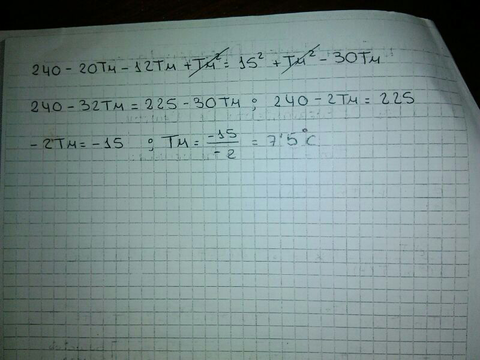 240 - 20TM - 12TM + TM² = 15² + TM² - 30TM
240 - 32TM = 225 - 30TM ; 240 - 2TM = 225
- 2TM = -15 ; TM = -15/-2 = 7'5°C